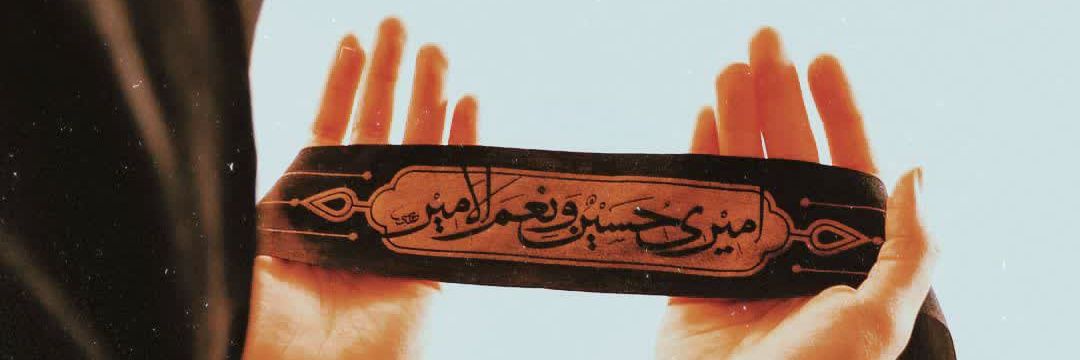 امیری حُسَیْنٌ وَنِعْمَ لْاَمیْر